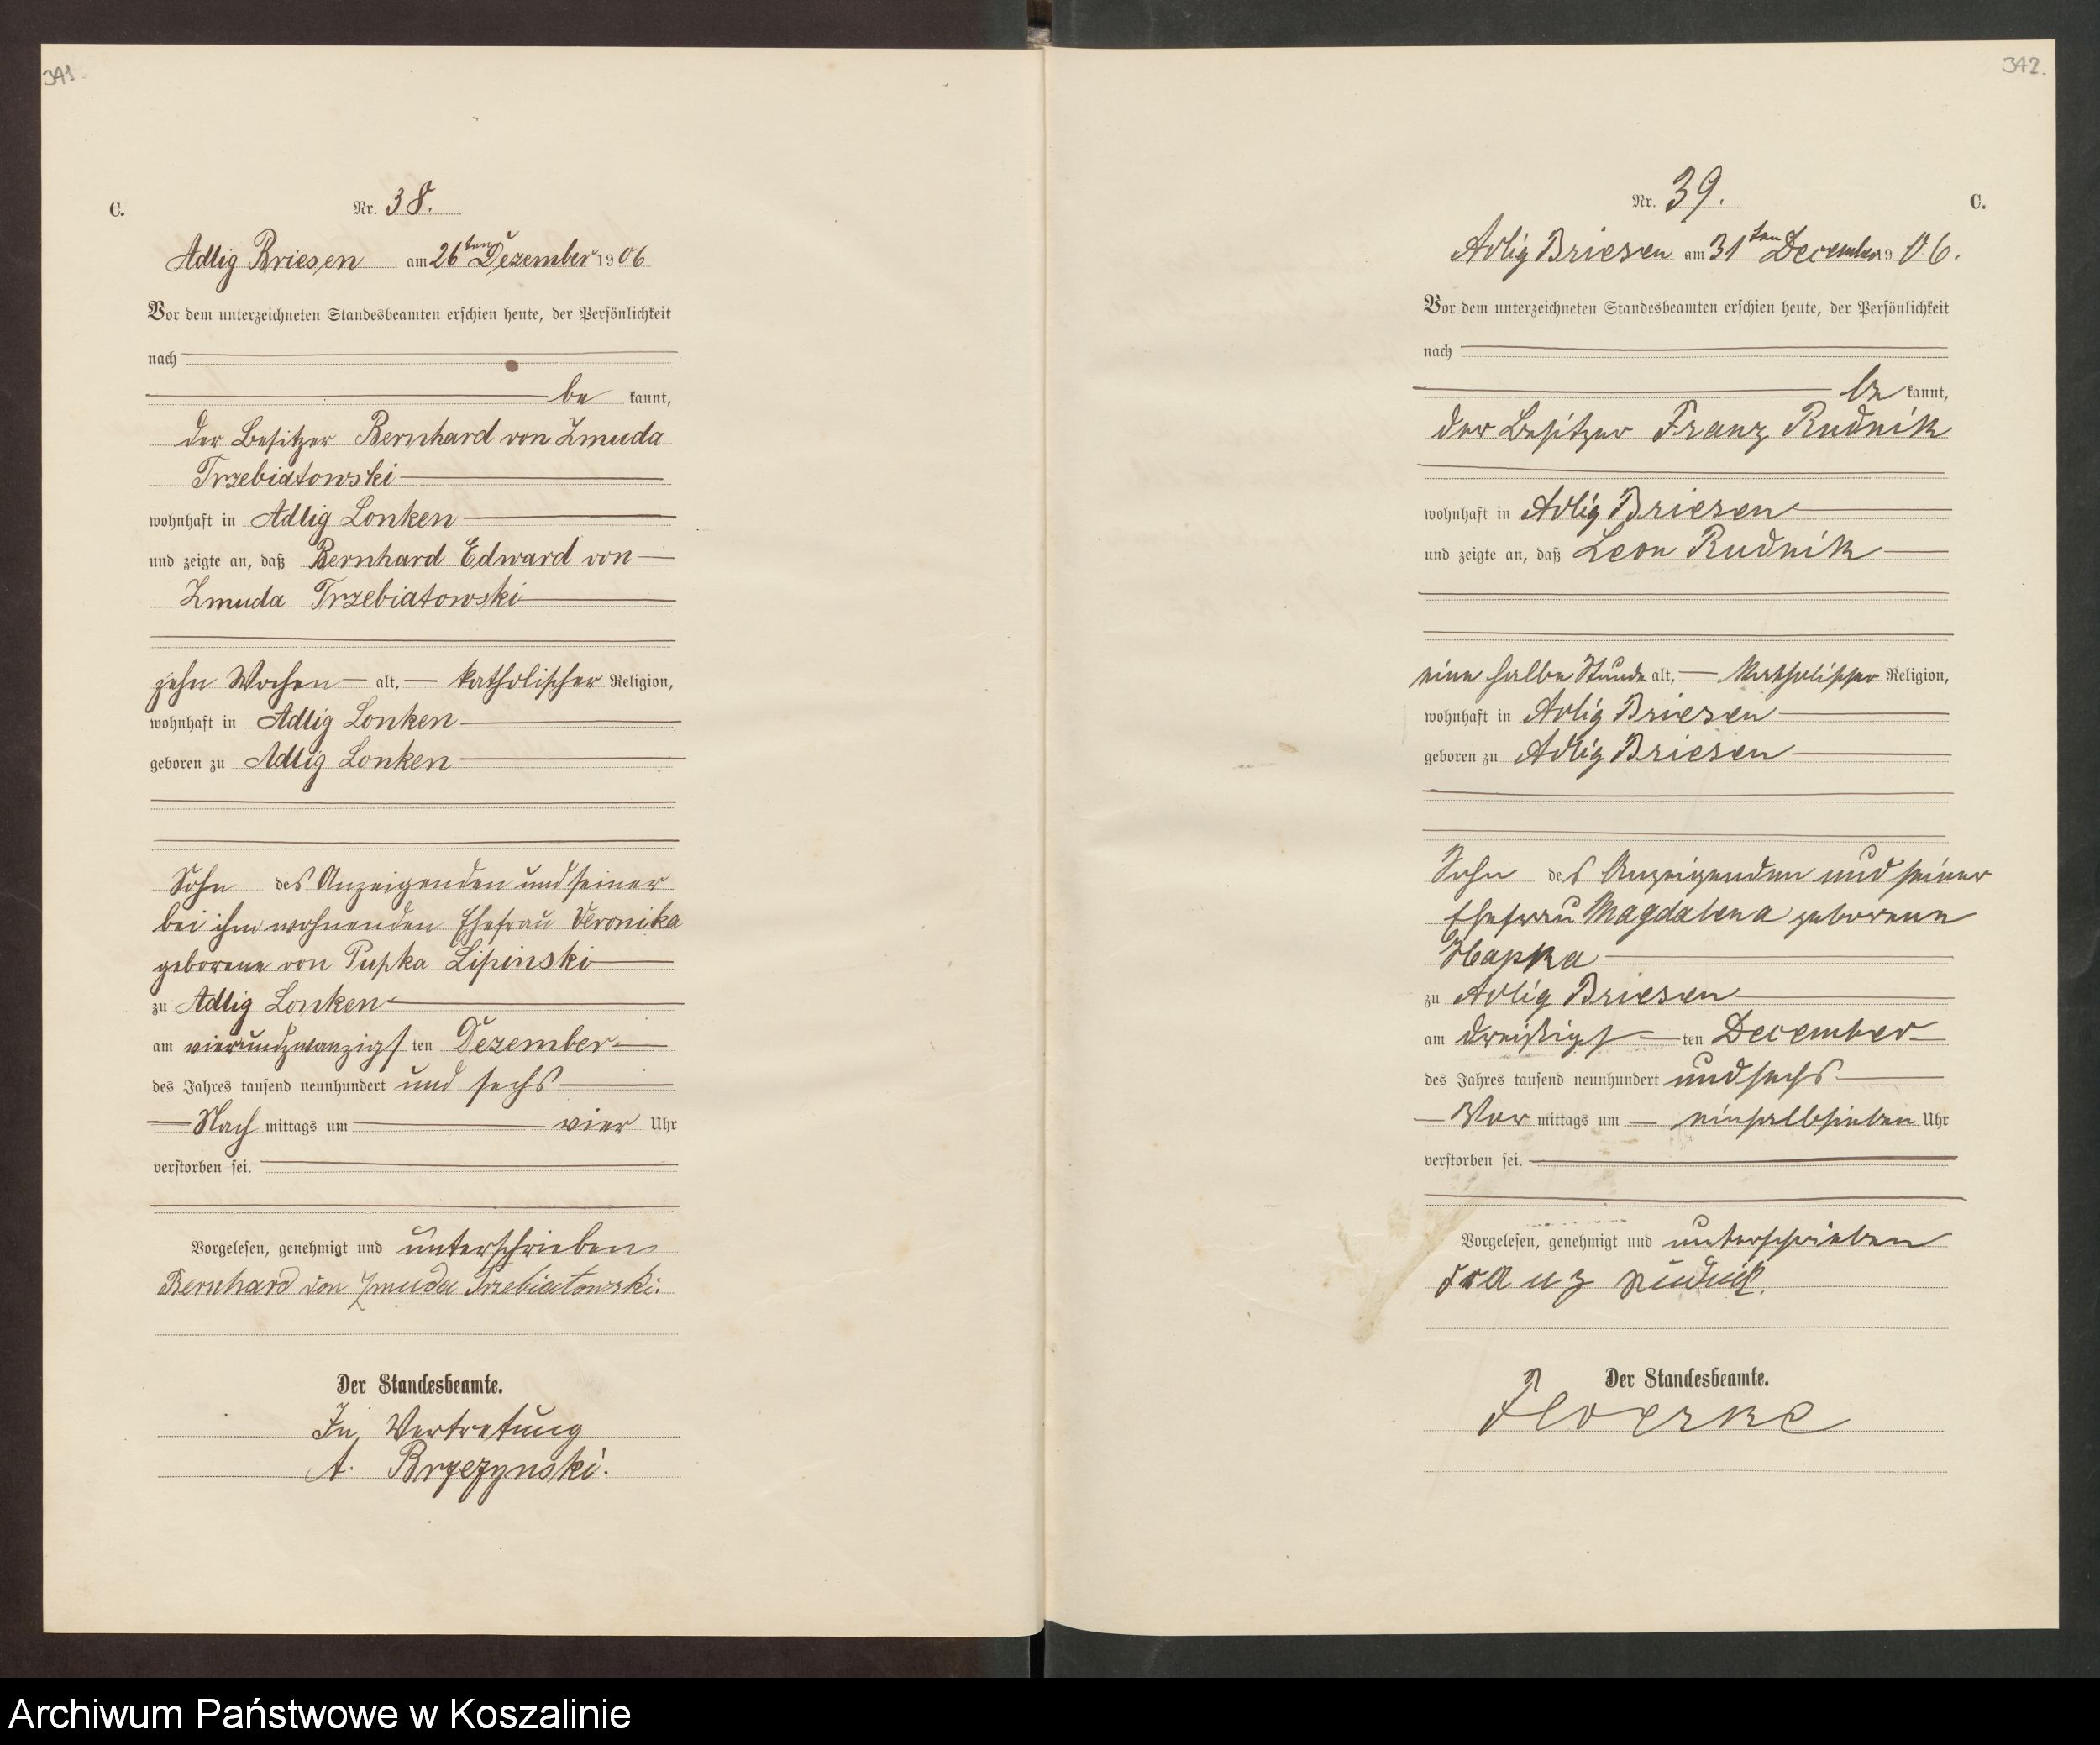 341
C.
Nr. 38.
Adlig Briesen am 26ten Dezember 1906
Vor dem unterzeichneten Standesbeamten erschien heute, der Persönlichkeit
nach
be kannt,
der Besitzer Bernhard von Zmuda
Trzebiatowski
wohnhaft in Adlig Lonken
und zeigte an, daß Bernhard Edward von
Zmuda Trzebiatowski
zehn Wochen alt, katholischer Religion,
wohnhaft in Adlig Lonken
geboren zu Adlig Lonken
Sohn des Anzeigenden und seiner
bei ihm wohnenden Ehefrau Veronika
geborene von Pupka Lipinski
zu Adlig Lonken
am vierundzwanzigsten Dezember
des Jahres tausend neunhundert und sechs
Nach mittags um vier Uhr
verstorben sei.
Vorgelesen, genehmigt und unterschrieben
Bernhard von Zmuda Trzebiatowski.
Der Standesbeamte.
In Vertretung
A. Brzezynski.
342.
C.
Nr. 39.
Adlig Briesen am 31ten December 1906.
Vor dem unterzeichneten Standesbeamten erschien heute, der Persönlichkeit
nach
be kannt,
der Besitzer Franz Rudnik
wohnhaft in Adlig Briesen
und zeigte an, daß Leon Rudnik
eine halbe Stunde alt, katholischer Religion,
wohnhaft in Adlig Briesen
geboren zu Adlig Briesen
Sohn des Anzeigenden und seiner
Ehefrau Magdalena geborene
zu Adlig Briesen
am dreißigsten December
des Jahres tausend neunhundert und sechs
Vor mittags um einhalbsieben Uhr
verstorben sei.
Vorgelesen, genehmigt und unterschrieben
Franz Rudnik.
Der Standesbeamte.
Floerke
Archiwum Państwowe w Koszalinie